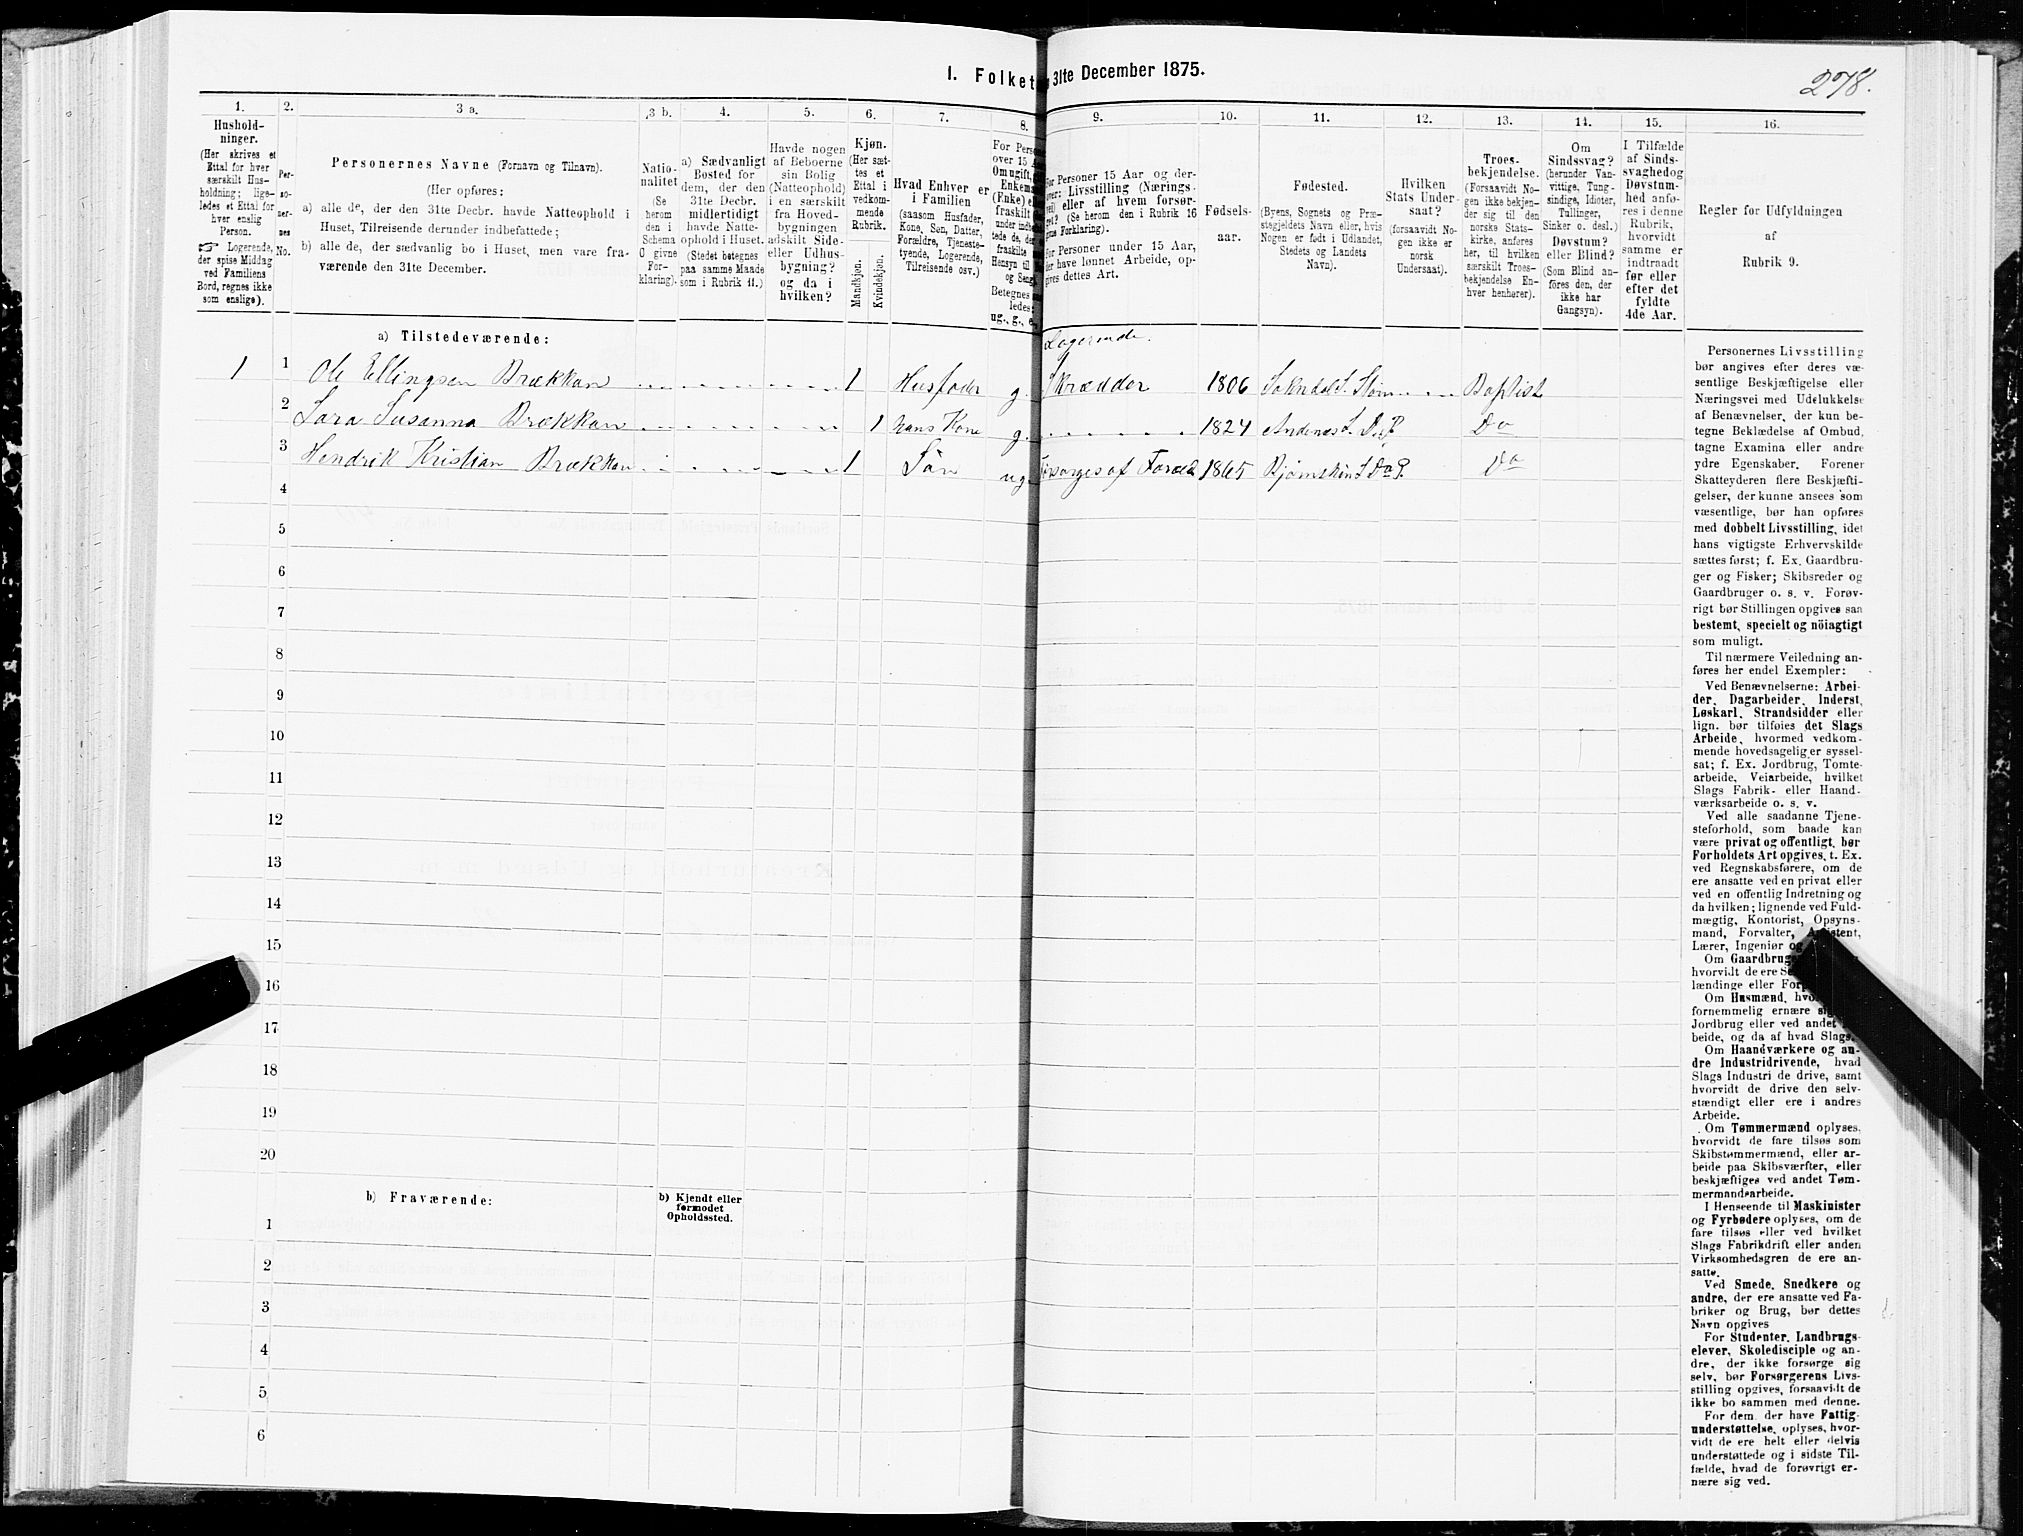 1. Folket 31te December 1875.
278.
1.
2.
3 a.
3 b.
4.
5.
6.
7.
8.
9.
10.
11.
12.
13.
14.
15.
16.
Hushold-
ninger.
(Her skrives et
Ettal for hver
særskilt Hus-
holdning; lige-
ledes et Ettal for
hver enslig
Person.
☞ Logerende,
der spise Middag
ved Familiens
Bord, regnes ikke
som enslige).
Per-
so-
ner-
nes
No.
Personernes Navne (Fornavn og Tilnavn).
(Her opføres:
a) alle de, der den 31te Decbr. havde Natteophold i
Huset, Tilreisende derunder indbefattede;
b) alle de, der sædvanlig bo i Huset, men vare fra-
værende den 31te December.
Natio-
nalitet
(Se
herom
den i
Schema
O givne
For-
klaring).
a) Sædvanligt
Bosted for
dem, der den
31te Decbr.
midlertidigt
havde Natte-
ophold i Huset.
(Stedet betegnes
paa samme Maade
som i Rubrik 11.)
Havde nogen
af Beboerne
sin Bolig
(Natteophold)
i en særskilt
fra Hoved-
bygningen
adskilt Side-
eller Udhus-
bygning?
og da i
hvilken?
Kjøn.
(Her sæt-
tes et
Ettal i
vedkom-
mende
Rubrik.
Mandkjøn.
Kvindekjøn.
Hvad Enhver er
i Familien
(saasom Husfader,
Kone, Søn, Datter,
Forældre, Tjeneste-
tyende, Logerende,
Tilreisende osv.)
For Perso
over 15 A
Om ugift,
Enkema
(Enke) e
fraskilt
under indb
tede de,
fraskilte
Hensyn til
og Seng
Betegnes
ledes:
ug., g., e.
For Personer 15 Aar og der-
over: Livsstilling (Nærings-
vei) eller af hvem forsør-
get? (Se herom den i Rubrik 16
givne Forklaring).
For Personer under 15 Aar,
der have lønnet Arbeide, op-
gives dettes Art.
Fødsels-
aar.
Fødested.
(Byens, Sognets og Præ-
stegjeldets Navn eller, hvis
Nogen er født i Udlandet,
Stedets og Landets
Navn).
Hvilken
Stats Under-
saat?
(forsaavidt No-
gen ikke er
norsk
Undersaat).
Troes-
bekjendelse.
(Forsaavidt No-
gen ikke bekjen-
der sig til den
norske Stats-
kirke, anføres
her, til hvilken
særskilt Troes-
bekjendelse En-
hver henhører).
Om
Sindssvag?
(herunder Van-
vittige, Tung-
sindige, Idioter,
Tullinger,
Sinker o. desl.)
Døvstum?
eller Blind?
(Som Blind an-
føres den, der
ikke har
Gangsyn).
I Tilfælde
af Sinds-
svaghed og
Døvstum-
hed anfø-
res i denne
Rubrik,
hvorvidt
samme er
indtraadt
før eller
efter det
fyldte
4de Aar.
Regler for Udfyldningen
af
Rubrik 9.
a) Tilstedeværende:
Logerende.
1 1 Ole Ellingsen Brækkan 1 Husfader g. Skrædder 1806 Sokndal S. Støren Baptist
2 Sara Susanna Brækkan 1 hans Kone g. 1824 Andenes S. D. P. Do
3 Hendrik Kristian Brækkan 1 Søn ug. Forsørges af Foræld 1865 Bjørnskin S. Do P. Do
4
5
6
7
8
9
10
11
12
13
14
15
16
17
18
19
20
b) Fraværende:
b) Kjendt eller
formodet
Opholdssted.
1
2
3
4
5
6
Personernes Livsstilling
bør angives efter deres væ-
sentlige Beskjæftigelse eller
Næringsvei med Udelukkelse
af Benævnelser, der kun be-
tegne Beklædelse af Ombud,
tagne Examina eller andre
ydre Egenskaber. Forener
Skatteyderen flere Beskjæfti-
gelser, der kunne ansees som
væsentlige, bør han opføres
med dobbelt Livsstilling, idet
hans vigtigste Erhvervskilde
sættes først; f. Ex. Gaardbru-
ger og Fisker; Skibsreder og
Gaardbruger o. s. v. Forøv-
rigt bør Stillingen opgives saa
bestemt, specielt og nöiagtigt
som muligt.
Til nærmere Veiledning an-
føres her endel Exempler:
Ved Benævnelserne: Arbei-
der, Dagarbeider, Inderst,
Løskarl, Strandsidder eller
lign. bør tilføies det Slags
Arbeide, hvormed vedkom-
mende hovedsagelig er syssel-
sat; f. Ex. Jordbrug, Tomte-
arbeide, Veiarbeide, hvilket
Slags Fabrik- eller Haand-
værksarbeide o. s. v.
Ved alle saadanne Tjene-
steforhold, som baade kan
være privat og offentligt, bør
Forholdets Art opgives, t. Ex.
ved Regnskabsførere, om de
ere ansatte ved en privat eller
ved en offentlig Indretning og
da hvilken; lignende ved Fuld-
mægtig, Kontorist, Opsyns-
mand, Forvalter, Assistent,
Lærer, Ingeniør og
Om Gaardbrug
hvorvidt de ere Se
lændinge eller Forp
Om Husmænd, hvo
fornemmelig ernære sig
Jordbrug eller ved andet
beide, og da af hvad Slags.
Om Haandværkere og an-
dre Industridrivende, hvad
Slags Industri de drive, samt
hvorvidt de drive den selv-
stændigt eller ere i andres
Arbeide.
Om Tømmermænd oplyses,
hvorvidt de fare tilsøs som
Skibstømmermænd, eller ar-
beide paa Skibsværfter, eller
beskjæftiges ved andet Tøm-
mermandsarbeide.
I Henseende til Maskinister
og Fyrbødere oplyses, om de
fare tilsøs eller ved hvilket
Slags Fabrikdrift eller anden
Virksomhedsgren de ere an-
satte.
Ved Smede, Snedkere og
andre, der ere ansatte ved Fa-
briker og Brug, bør dettes
Navn opgives
For Studenter, Landbrugs-
elever, Skoledisciple og an-
dre, der ikke forsørge sig
selv, bør Forsørgerens Livs-
stilling opgives, forsaavidt de
ikke bo sammen med denne.
For dem, der have Fattig-
understøttelse, oplyses, hvor-
vidt de ere helt eller delvis
understøttede og i sidste Til-
fælde, hvad de forøvrigt er-
nære sig ved.